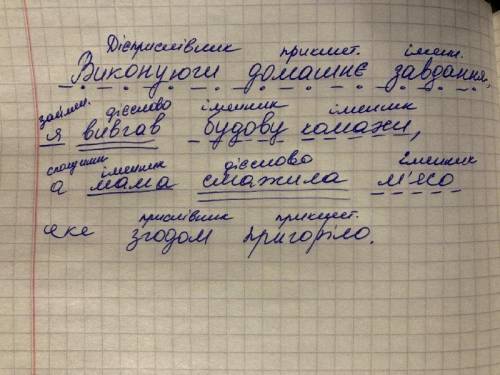 Дієприслівник прикмет. імен.
Виконуючи домашнє завдання,
займен. дієслово іменник іменник
я вивчав будову комахи,
сполучник іменник дієслово іменник
а мама смажила м'ясо
прислівник прикмет.
яке згодом пригоріло.